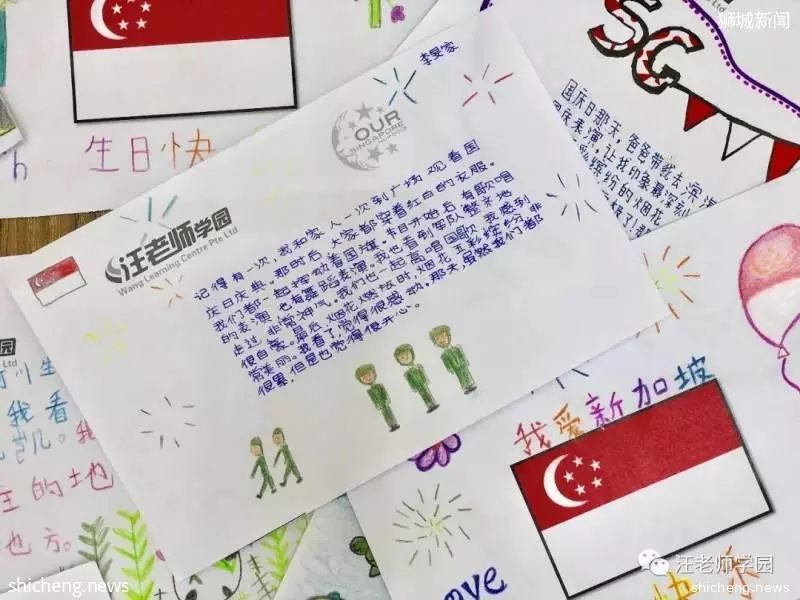 狮城新闻
李旻家
SG
OUR
SINGAPORE
生日快
h
汪老师学园
Wang Learning Centre Pte Ltd
记得有一次，我和家人一次到广场观看国
庆日庆典。那时后，大家都穿着红白的衣服。
我们都一起挥动着国旗。节目开始后，有歌唱
的表演，也有舞蹈表演。我也看到军队整齐地
走过，非常神气。我们也一起高唱国歌，我感到
很自豪。最后，烟花燃放时，烟花五彩缤纷，非
常美丽。我看了，觉得很感动。那天，虽然我们都
很累，但是也觉得很开心。
国庆日那天，爸爸带我去滨
庆表演，让我印象最深刻
缤纷的烟花
学园
Ltd
我看
主的地
也方。
我爱新加坡
Love
快乐
汪老师学园
shicheng.news
shicheng.news